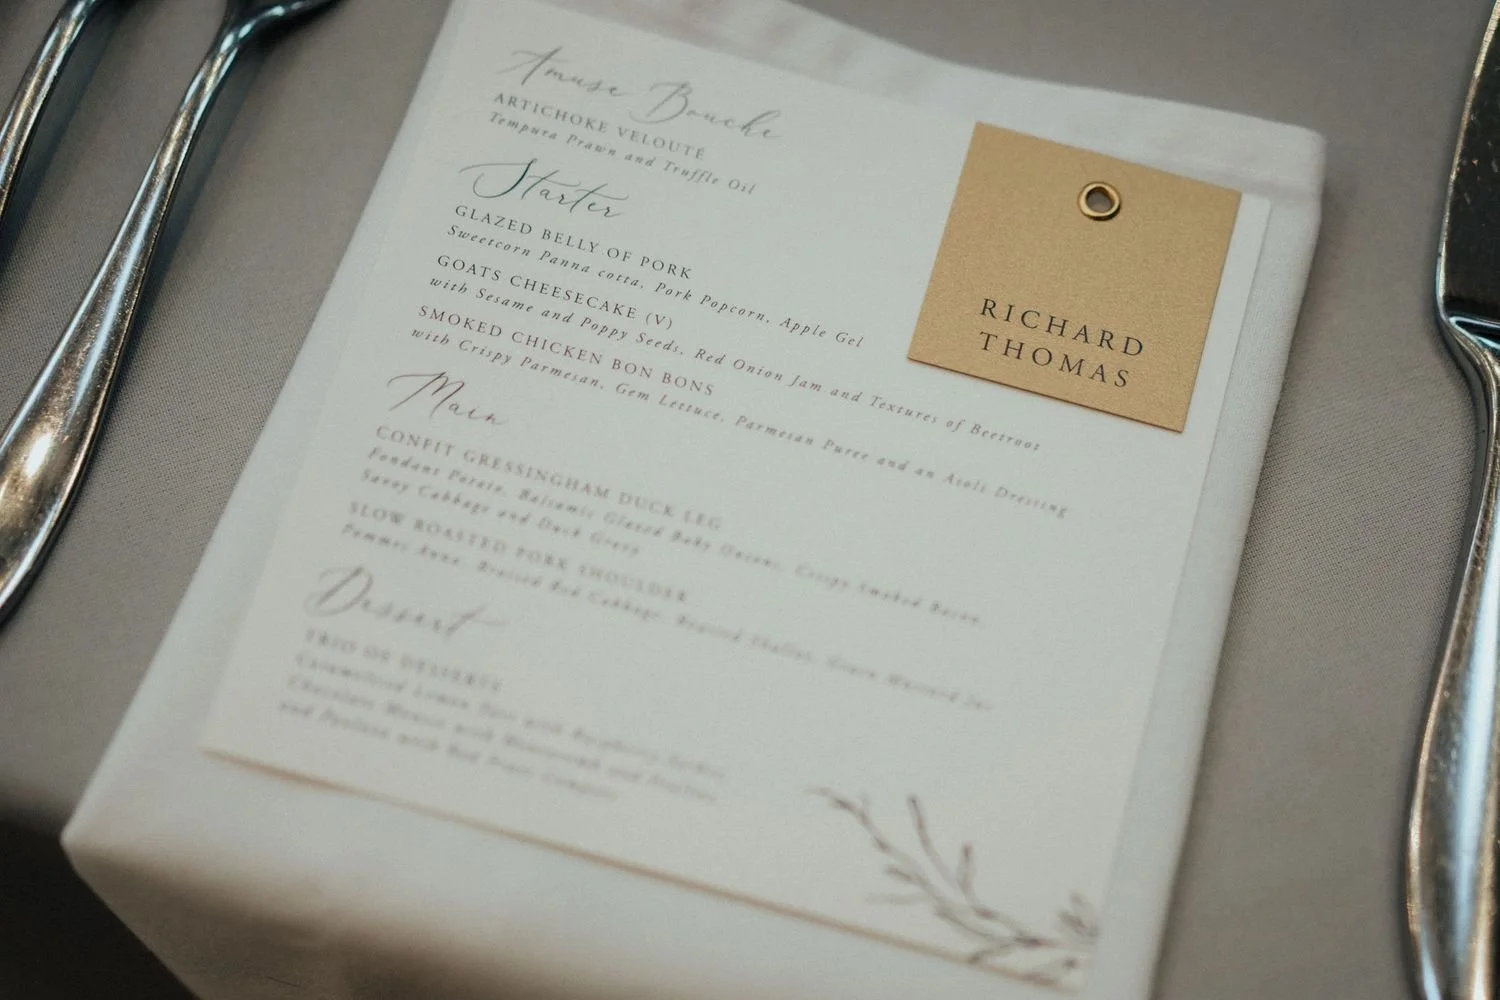 Amuse Bouche
ARTICHOKE VELOUTÉ
Tempura Prawn and Truffle Oil
Starter
GLAZED BELLY OF PORK
Sweetcorn Panna cotta, Pork Popcorn, Apple Gel
GOATS CHEESECAKE (V)
with Sesame and Poppy Seeds, Red Onion Jam and Textures of Beetroot
SMOKED CHICKEN BON BONS
with Crispy Parmesan, Gem Lettuce, Parmesan Puree and an Aioli Dressing
Main
CONFIT GRESSINGHAM DUCK LEG
Fondant Potato, Balsamic Glazed Baby Onions, Crispy Smoked Bacon,
Savoy Cabbage and Duck Gravy
SLOW ROASTED PORK SHOULDER
Pommes Anna, Braised Red Cabbage, Roasted Shallot, Grain Mustard Jus
Dessert
TRIO OF DESSERTS
Caramelised Lemon Tart with Raspberry
Chocolate with Honeycomb and
and Pavlova with Red Fruit Compote
RICHARD
THOMAS